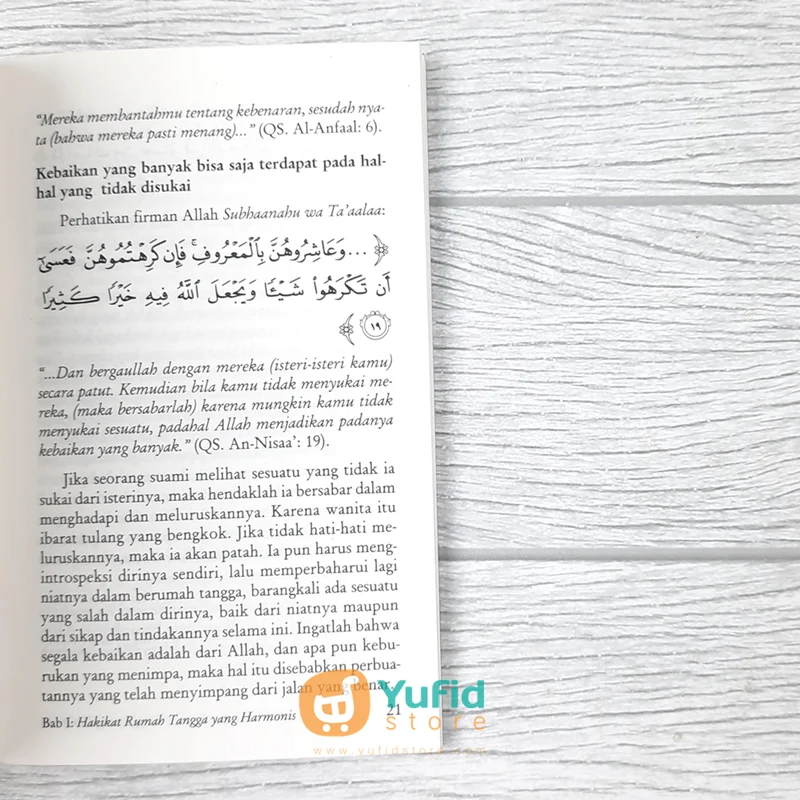 “Mereka membantahmu tentang kebenaran, sesudah nya-
ta (bahwa mereka pasti menang)...” (QS. Al-Anfaal: 6).
Kebaikan yang banyak bisa saja terdapat pada hal-
hal yang tidak disukai
Perhatikan firman Allah Subhaanahu wa Ta’aalaa:
﴿ ...وَعَاشِرُوهُنَّ بِٱلْمَعْرُوفِۚ فَإِن كَرِهْتُمُوهُنَّ فَعَسَىٰٓ
أَن تَكْرَهُوا۟ شَيْـًٔا وَيَجْعَلَ ٱللَّهُ فِيهِ خَيْرًا كَثِيرًا
١٩ ﴾
“...Dan bergaullah dengan mereka (isteri-isteri kamu)
secara patut. Kemudian bila kamu tidak menyukai me-
reka, (maka bersabarlah) karena mungkin kamu tidak
menyukai sesuatu, padahal Allah menjadikan padanya
kebaikan yang banyak.” (QS. An-Nisaa’: 19).
Jika seorang suami melihat sesuatu yang tidak ia
sukai dari isterinya, maka hendaklah ia bersabar dalam
menghadapi dan meluruskannya. Karena wanita itu
ibarat tulang yang bengkok. Jika tidak hati-hati me-
luruskannya, maka ia akan patah. Ia pun harus meng-
introspeksi dirinya sendiri, lalu memperbaharui lagi
niatnya dalam berumah tangga, barangkali ada sesuatu
yang salah dalam dirinya, baik dari niatnya maupun
dari sikap dan tindakannya selama ini. Ingatlah bahwa
segala kebaikan adalah dari Allah, dan apa pun kebu-
rukan yang menimpa, maka hal itu disebabkan perbua-
tannya yang telah menyimpang dari jalan yang benar.
Bab I: Hakikat Rumah Tangga yang Harmonis 21
Yufid
store
www.yufidstore.com